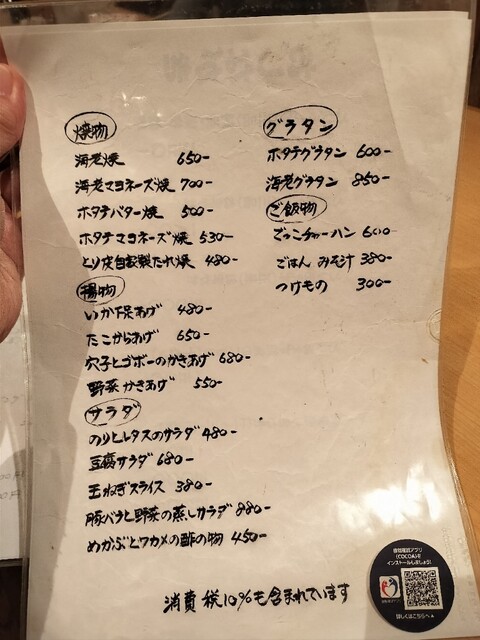 焼物
海老焼 650-
海老マヨネーズ焼 700-
ホタテバター焼 500-
ホタテマヨネーズ焼 530-
とり皮自家製たれ焼 480-
揚物
いか下足あげ 480-
たこからあげ 650-
穴子とゴボーのかきあげ 680-
野菜かきあげ 550-
サラダ
のりとレタスのサラダ 480-
豆腐サラダ 680-
玉ねぎスライス 380-
豚バラと野菜の蒸しサラダ 880-
めかぶとワカメの酢の物 450-
グラタン
ホタテグラタン 600-
海老グラタン 850-
ご飯物
ごっこチャーハン 600-
ごはん みそ汁 380-
つけもの 300-
消費税10%も含まれています
接触確認アプリ
(COCOA)を
インストールしましょう!
詳しくはこちらへ▲